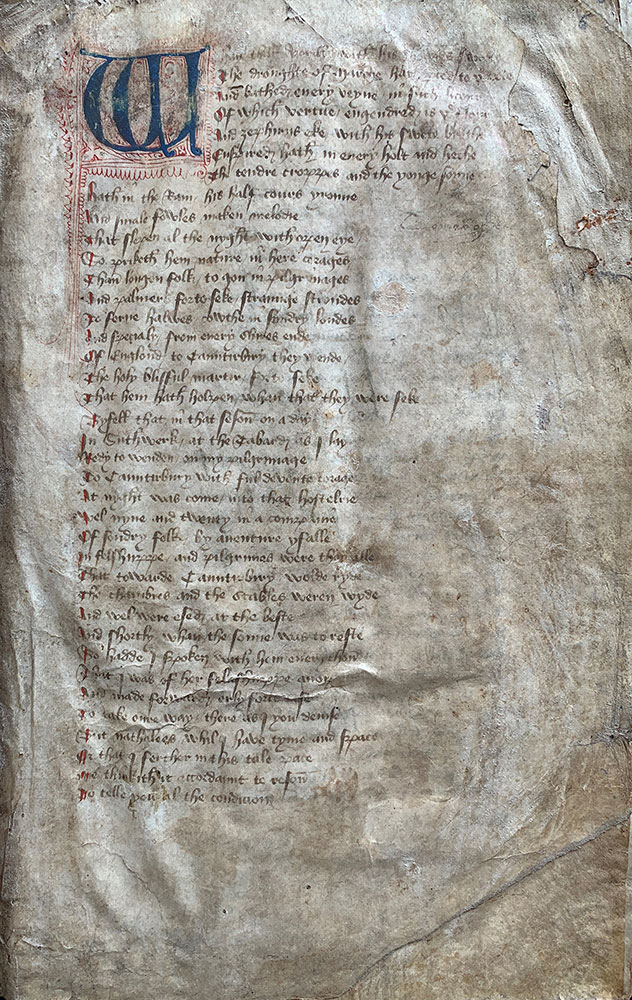 W that with his
The droughte of Marche hath to
And bathed euery veyne in such licour
Of which vertue engendred is þe flour
And zephirus eke with his swete brethe
Enspired hath in euery holt and hethe
The tendre croppes and the yonge sonne
Hath in the Ram his half cours yronne
And smale fowles maken melodie
That slepen al the nyght with open eye
So priketh hem nature in here corages
Than longen folk to gon in pilgrimages
And palmers forto seke straunge strondes
To ferne halwes cowthe in sundry londes
And specialy from euery shires ende
Of Englond to Cauntirbury they wende
The holy blisful martir forto seke
That hem hath holpen whan that they were seke
Byfell that in that seson on a day
In Suthwerk at the Tabard as I lay
Redy to wenden on my pilgrimage
To Cauntirbury with ful devoute corage
At night was come into that hostelrie
Wel nyne and twenty in a companie
Of sondry folk by auenture yfalle
In felshippe and pilgrimes were they alle
That towarde Cauntirbury wolde ryde
The chambres and the stables weren wyde
And wel were esed at the beste
And shortly whan the sonne was to reste
So hadde I spoken with hem euerychone
That I was of her felashippe anon
And made forward erly forto rise
To take oure way there as I you deuise
But nathales whil I have tyme and space
Or that I ferther in this tale pace
Me thinkith it accordaunt to reson
To telle you al the condicion